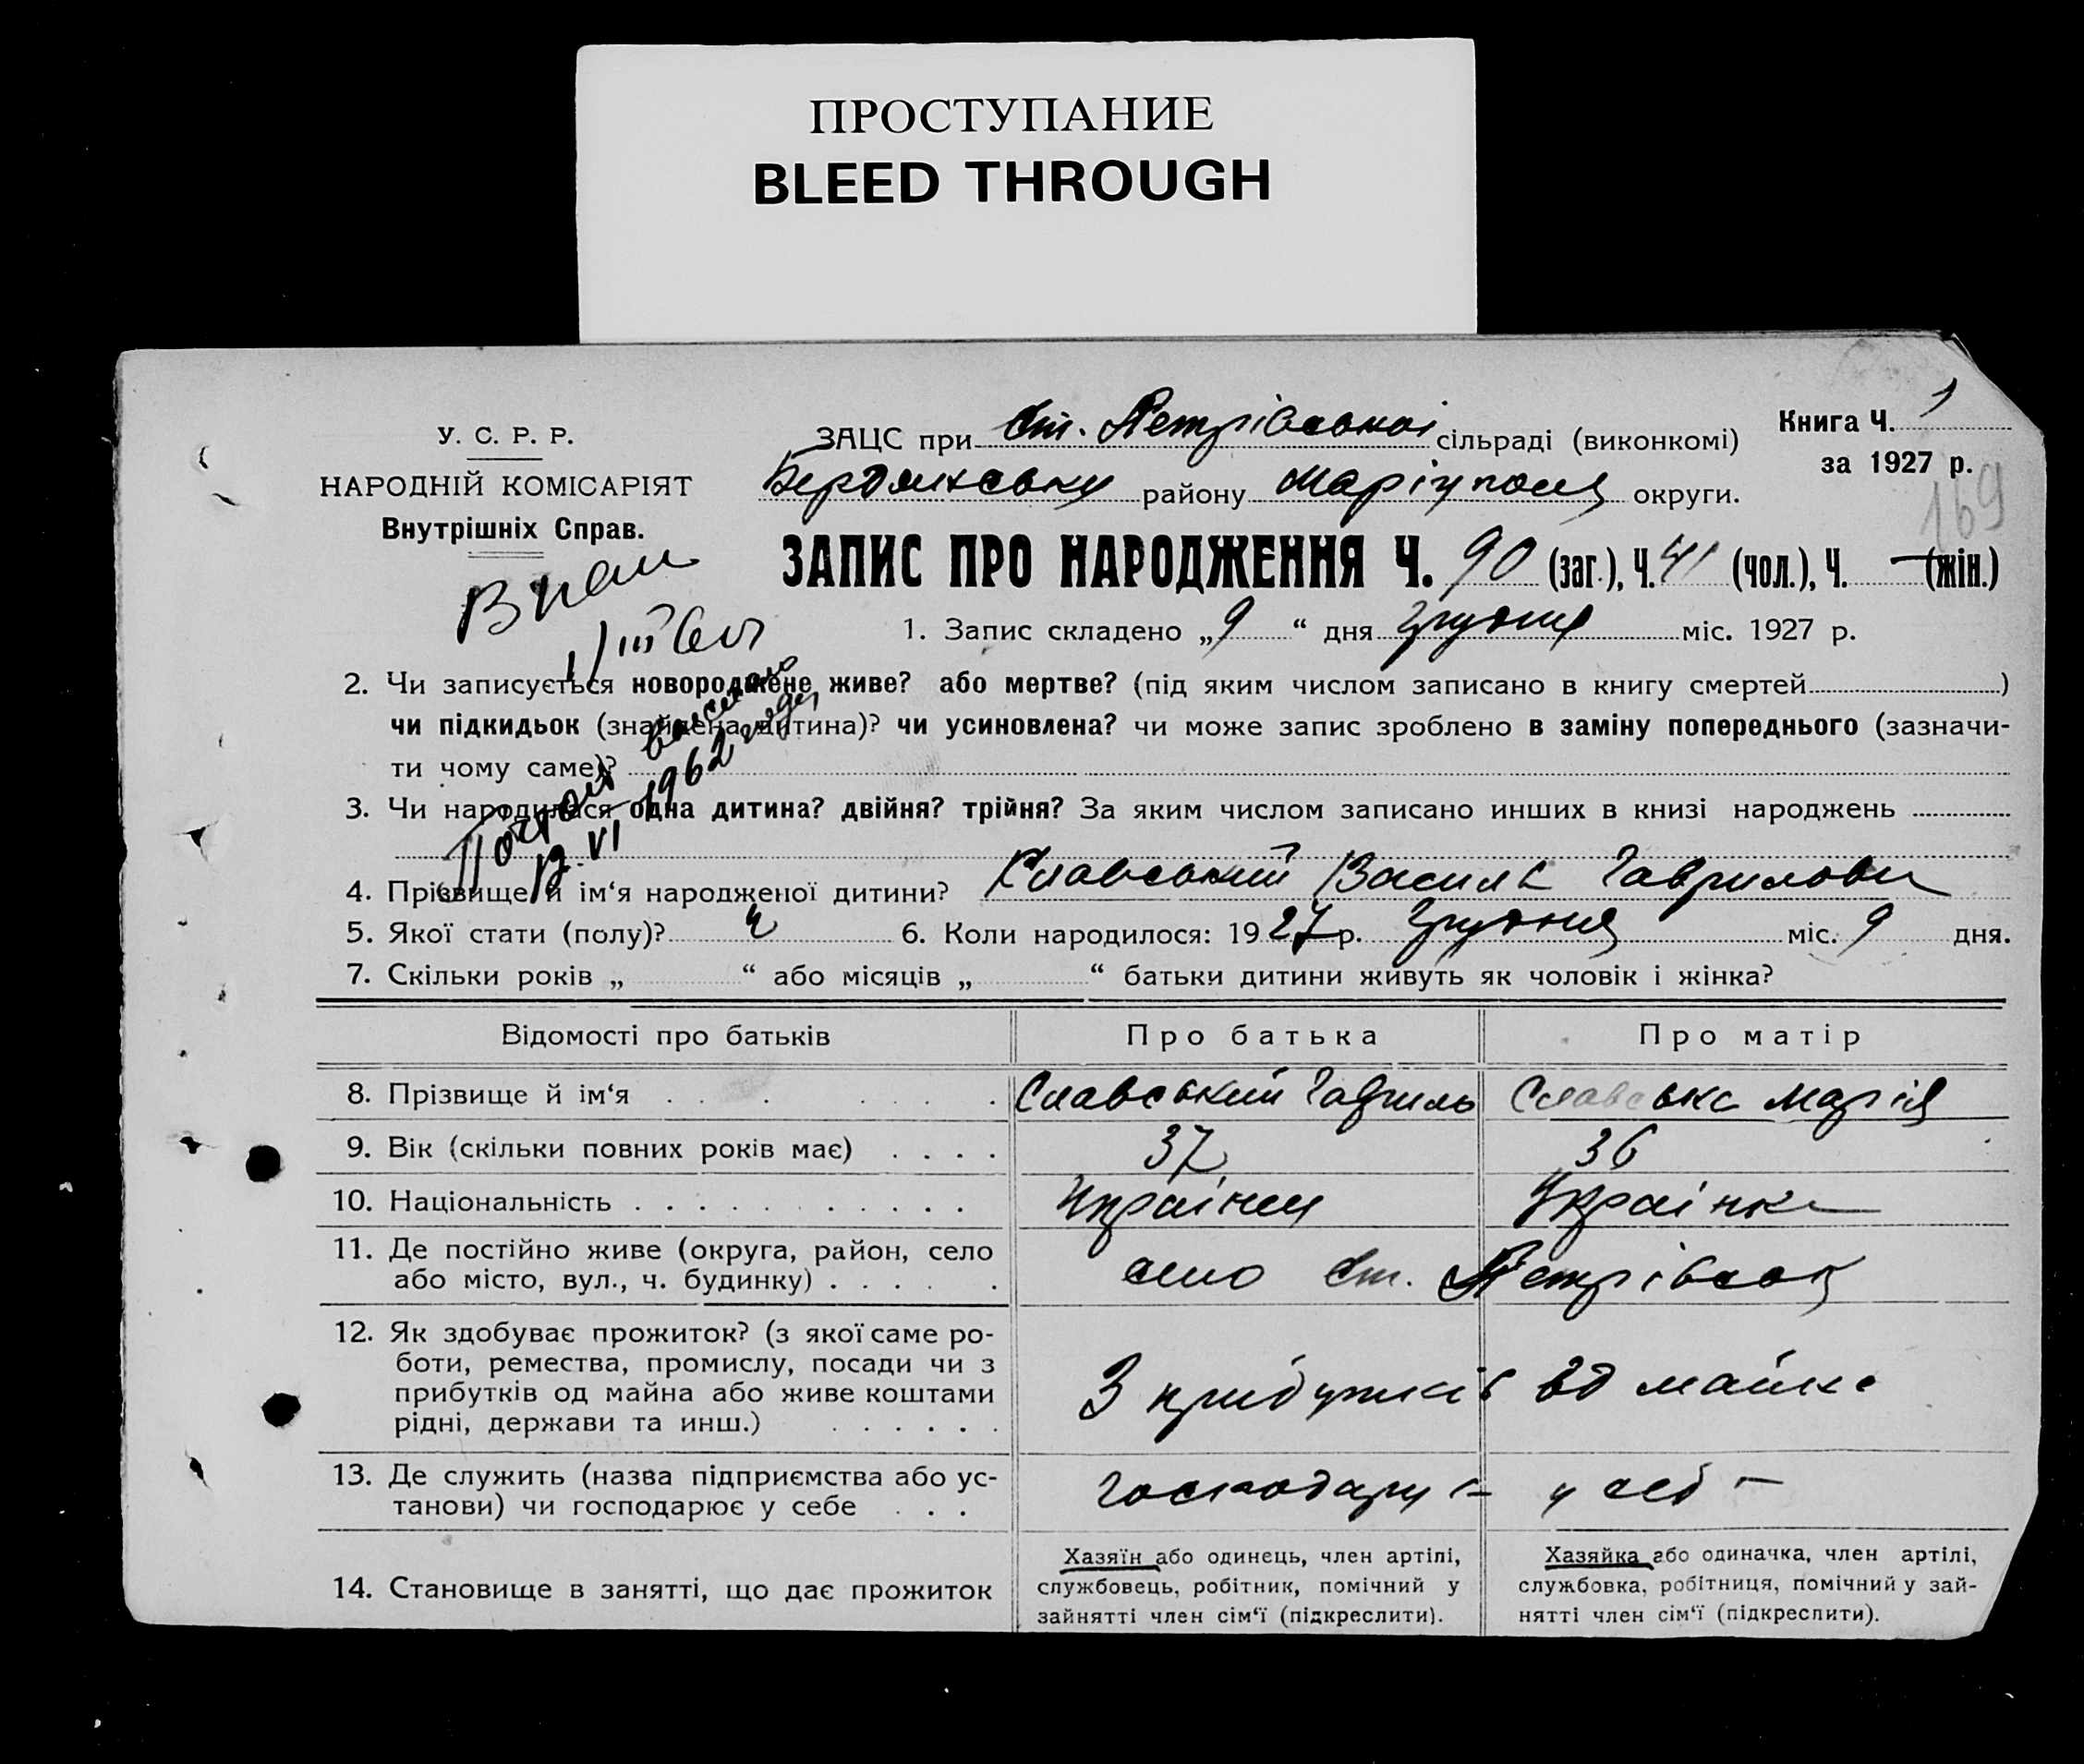 ПРОСТУПАНИЕ
BLEED THROUGH
У. С. Р. Р.
НАРОДНІЙ КОМІСАРІЯТ
Внутрішніх Справ.
ЗАЦС при Ст. Петрівської сільраді (виконкомі)
Бердянську району Маріупол округи.
Книга Ч. 1
за 1927 р.
169
ЗАПИС ПРО НАРОДЖЕННЯ Ч. 90 (заг.), Ч. 41 (чол.), Ч. — (жін.)
1. Запис складено „9“ дня Грудня міс. 1927 р.
2. Чи записується новороджене живе? або мертве? (під яким числом записано в книгу смертей )
чи підкидьок (знайдена дитина)? чи усиновлена? чи може запис зроблено в заміну попереднього (зазначи-
ти чому саме)?
3. Чи народилася одна дитина? двійня? трійня? За яким числом записано инших в книзі народжень
Повторно выслано
12.VI 1962 года
4. Прізвище й ім‘я народженої дитини? Славський Василь Гаврилови
5. Якої стати (полу)? ч 6. Коли народилося: 1927 р. Грудня міс. 9 дня.
7. Скільки років „ “ або місяців „ “ батьки дитини живуть як чоловік і жінка?
Відомості про батьків Про батька Про матір
8. Прізвище й ім‘я Славський Гавриль Славська Марія
9. Вік (скільки повних років має) 37 36
10. Національність Українец Українка
11. Де постійно живе (округа, район, село
або місто, вул., ч. будинку) село Ст. Петрівська
12. Як здобуває прожиток? (з якої саме ро-
боти, ремества, промислу, посади чи з
прибутків од майна або живе коштами
рідні, держави та инш.) З прибутків од майна
13. Де служить (назва підприємства або ус-
танови) чи господарює у себе господарує у себе
14. Становище в занятті, що дає прожиток
Хазяїн або одинець, член артілі,
службовець, робітник, помічний у
зайнятті член сім‘ї (підкреслити).
Хазяйка або одиначка, член артілі,
службовка, робітниця, помічний у зай-
нятті член сім‘ї (підкреслити).